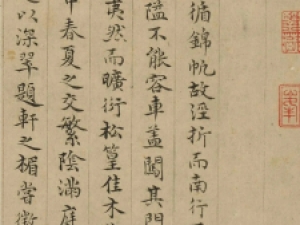 循錦帆故涇折而南行
隘不能容車蓋闖其門
夷然而曠衍松篁佳木
中春夏之交繁陰滿庭
以深翠題軒之楣嘗徵